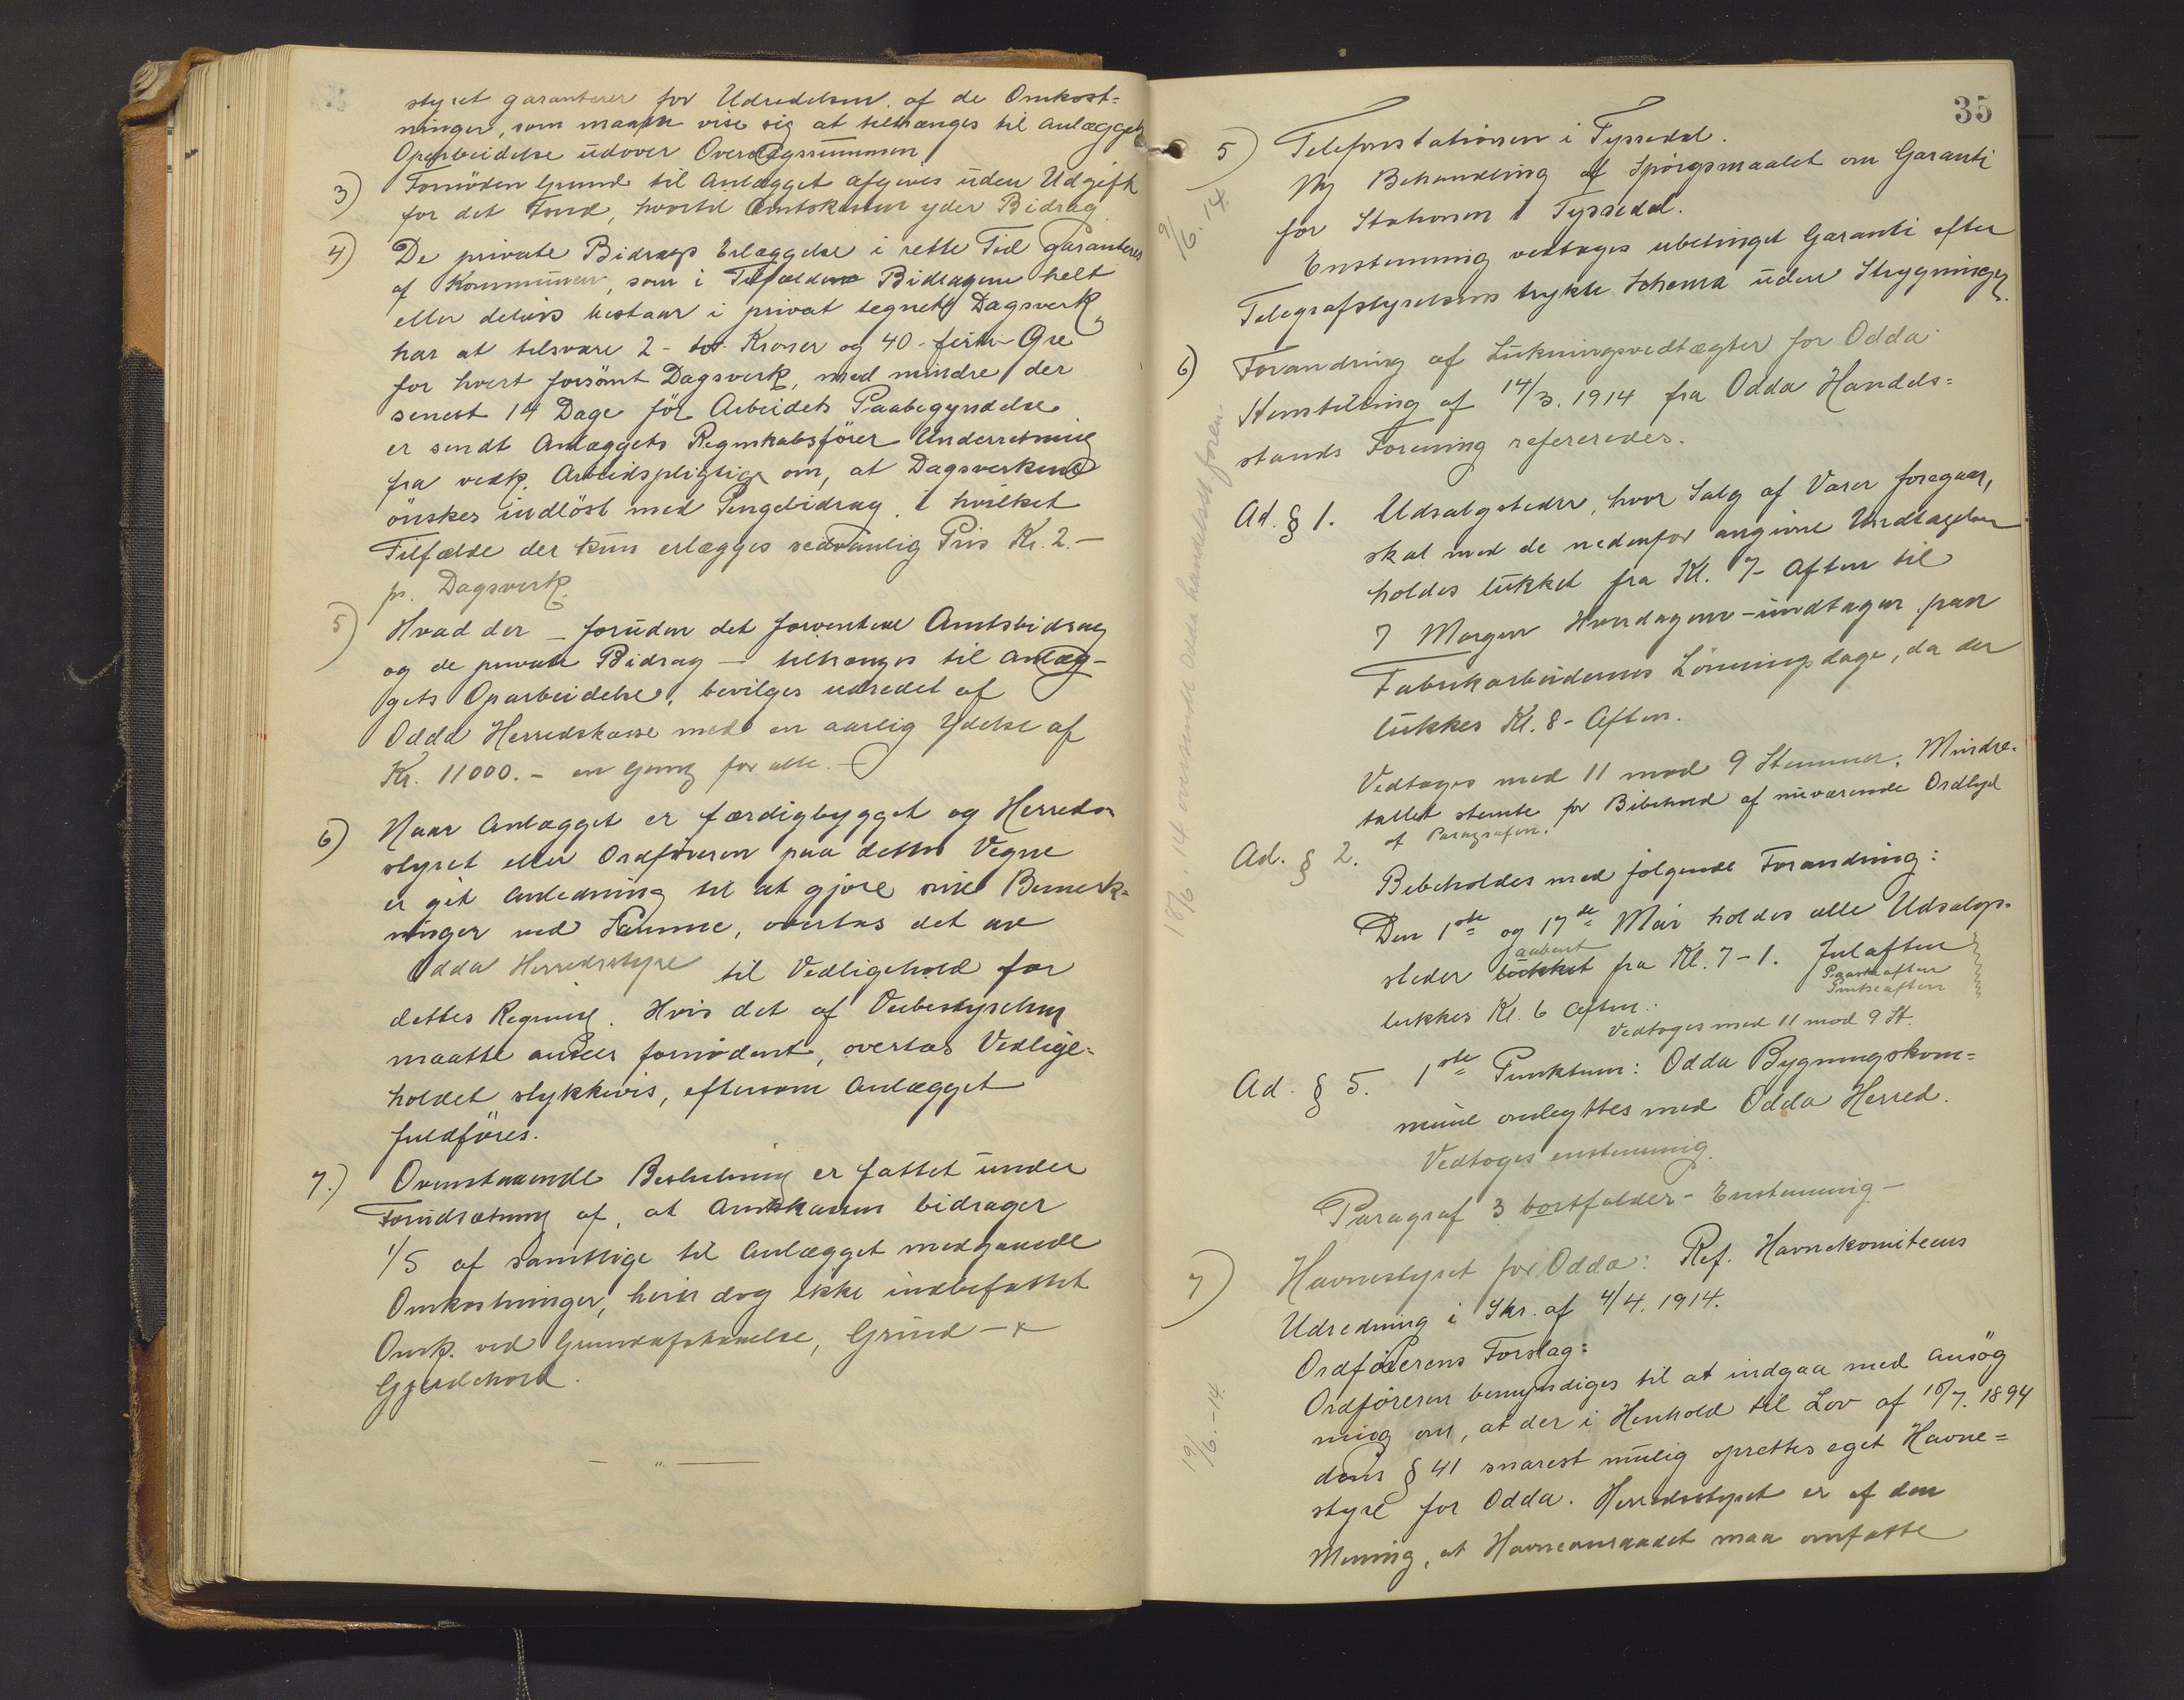 styret garanterer for Udredelsen af de Omkost=
ninger, som maatte vise sig at tiltrænges til Anlæggets
Oparbeidelse udover Overslagssummen
3) Fornöden Grund til Anlægget afgives uden Udgift
for det Fond, hvortil Amtskassen yder Bidrag
4) De private Bidrags Erlæggelse i rette Tid garanteres
af Kommunen, som i Tilfælde Bidragene helt
eller delvis bestaar i privat tegnet Dagsverk
har at tilsvare 2 - to - Kroner og 40 - firti - Øre
for hvert forsömt Dagsverk, med mindre der
senest 14 Dage för Arbeidets Paabegyndelse
er sendt Anlæggets Regnskabsförer Underretning
fra vedk. Arbeidspligtige om, at Dagsverkene
önskes indlöst med Pengebidrag, i hvilket
Tilfælde der kun erlægges sedvanlig Pris Kr. 2.-
pr. Dagsverk.
5) Hvad der - foruden det forventede Amtsbidrag
og de private Bidrag - tiltrænges til Anlæg-
gets Oparbeidelse, bevilges udredet af
Odda Herredskasse med en aarlig Ydelse af
Kr. 11000.- en Gang for alle.
6) Naar Anlægget er færdigbygget og Herreds-
styret eller Ordföreren paa dettes Vegne
er git Anledning til at gjöre sine Bemerk-
ninger ved Samme, overtas det av
Odda Herredsstyre til Vedligehold for
dettes Regning. Hvis det af Veibestyrelsen
maatte ansees fornödent, overtas Vedlige-
holdet stykkevis, eftersom Anlægget
fuldföres.
7.) Ovenstaaende Beslutning er fattet under
Forudsætning af, at Amtskassen bidrager
1/5 af samtlige til Anlægget medgaaede
Omkostninger, heri dog ikke indbefattet
Omk. ved Grundafstaaelse, Grind- &
Gjerdehold.
35
5) Telefonstationen i Tyssedal.
Ny Behandling af Spörgsmaalet om Garanti
for Stationen i Tyssedal.
9/6. 14.
Enstemmig vedtoges ubetinget Garanti efter
Telegrafstyrelsens trykte Schema uden Strygninger.
6) Forandring af Lukningsvedtægter for Odda
Henstilling af 14/3. 1914 fra Odda Handels=
stands Forening refereredes.
18/6. 14 oversendt Odda handelsst. foren.
Ad. § 1. Udsalgsteder, hvor Salg af Varer foregaar,
skal med de nedenfor angivne Undtagelser
holdes lukket fra Kl. 7 - Aften til
7 Morgen Hverdagene - undtagen paa
Fabrikarbeidernes Lönningsdage, da der
lukkes Kl. 8 - Aften.
Vedtages med 11 mod 9 Stemmer. Mindre-
tallet stemte for Bibehold af nuværende Ordlyd
af Paragrafen.
Ad. § 2.
Bibeholdes med fölgende Forandring:
Den 1ste og 17de Mai holdes alle Udsalgs-
aabent
steder lukket fra Kl. 7-1. Julaften
Paaskeaften
Pintseaften
lukkes Kl. 6 Aften.
Vedtoges med 11 mod 9 St.
Ad. § 5. 1ste Punktum: Odda Bygningskom=
mune ombyttes med Odda Herred.
Vedtoges enstemmig.
Paragraf 3 bortfalder - Enstemmig -
7) Havnestyret for Odda: Ref. Havnekomiteens
Udredning i Skr. af 4/4. 1914.
Ordförerens Forslag:
Ordföreren bemyndiges til at indgaa med Ansög
19/6.-14.
ning om, at der i Henhold til Lov af 10/7. 1894
dens § 41 snarest mulig oprettes eget Havne=
styre for Odda. Herredsstyret er af den
Mening, at Havneomraadet maa omfatte